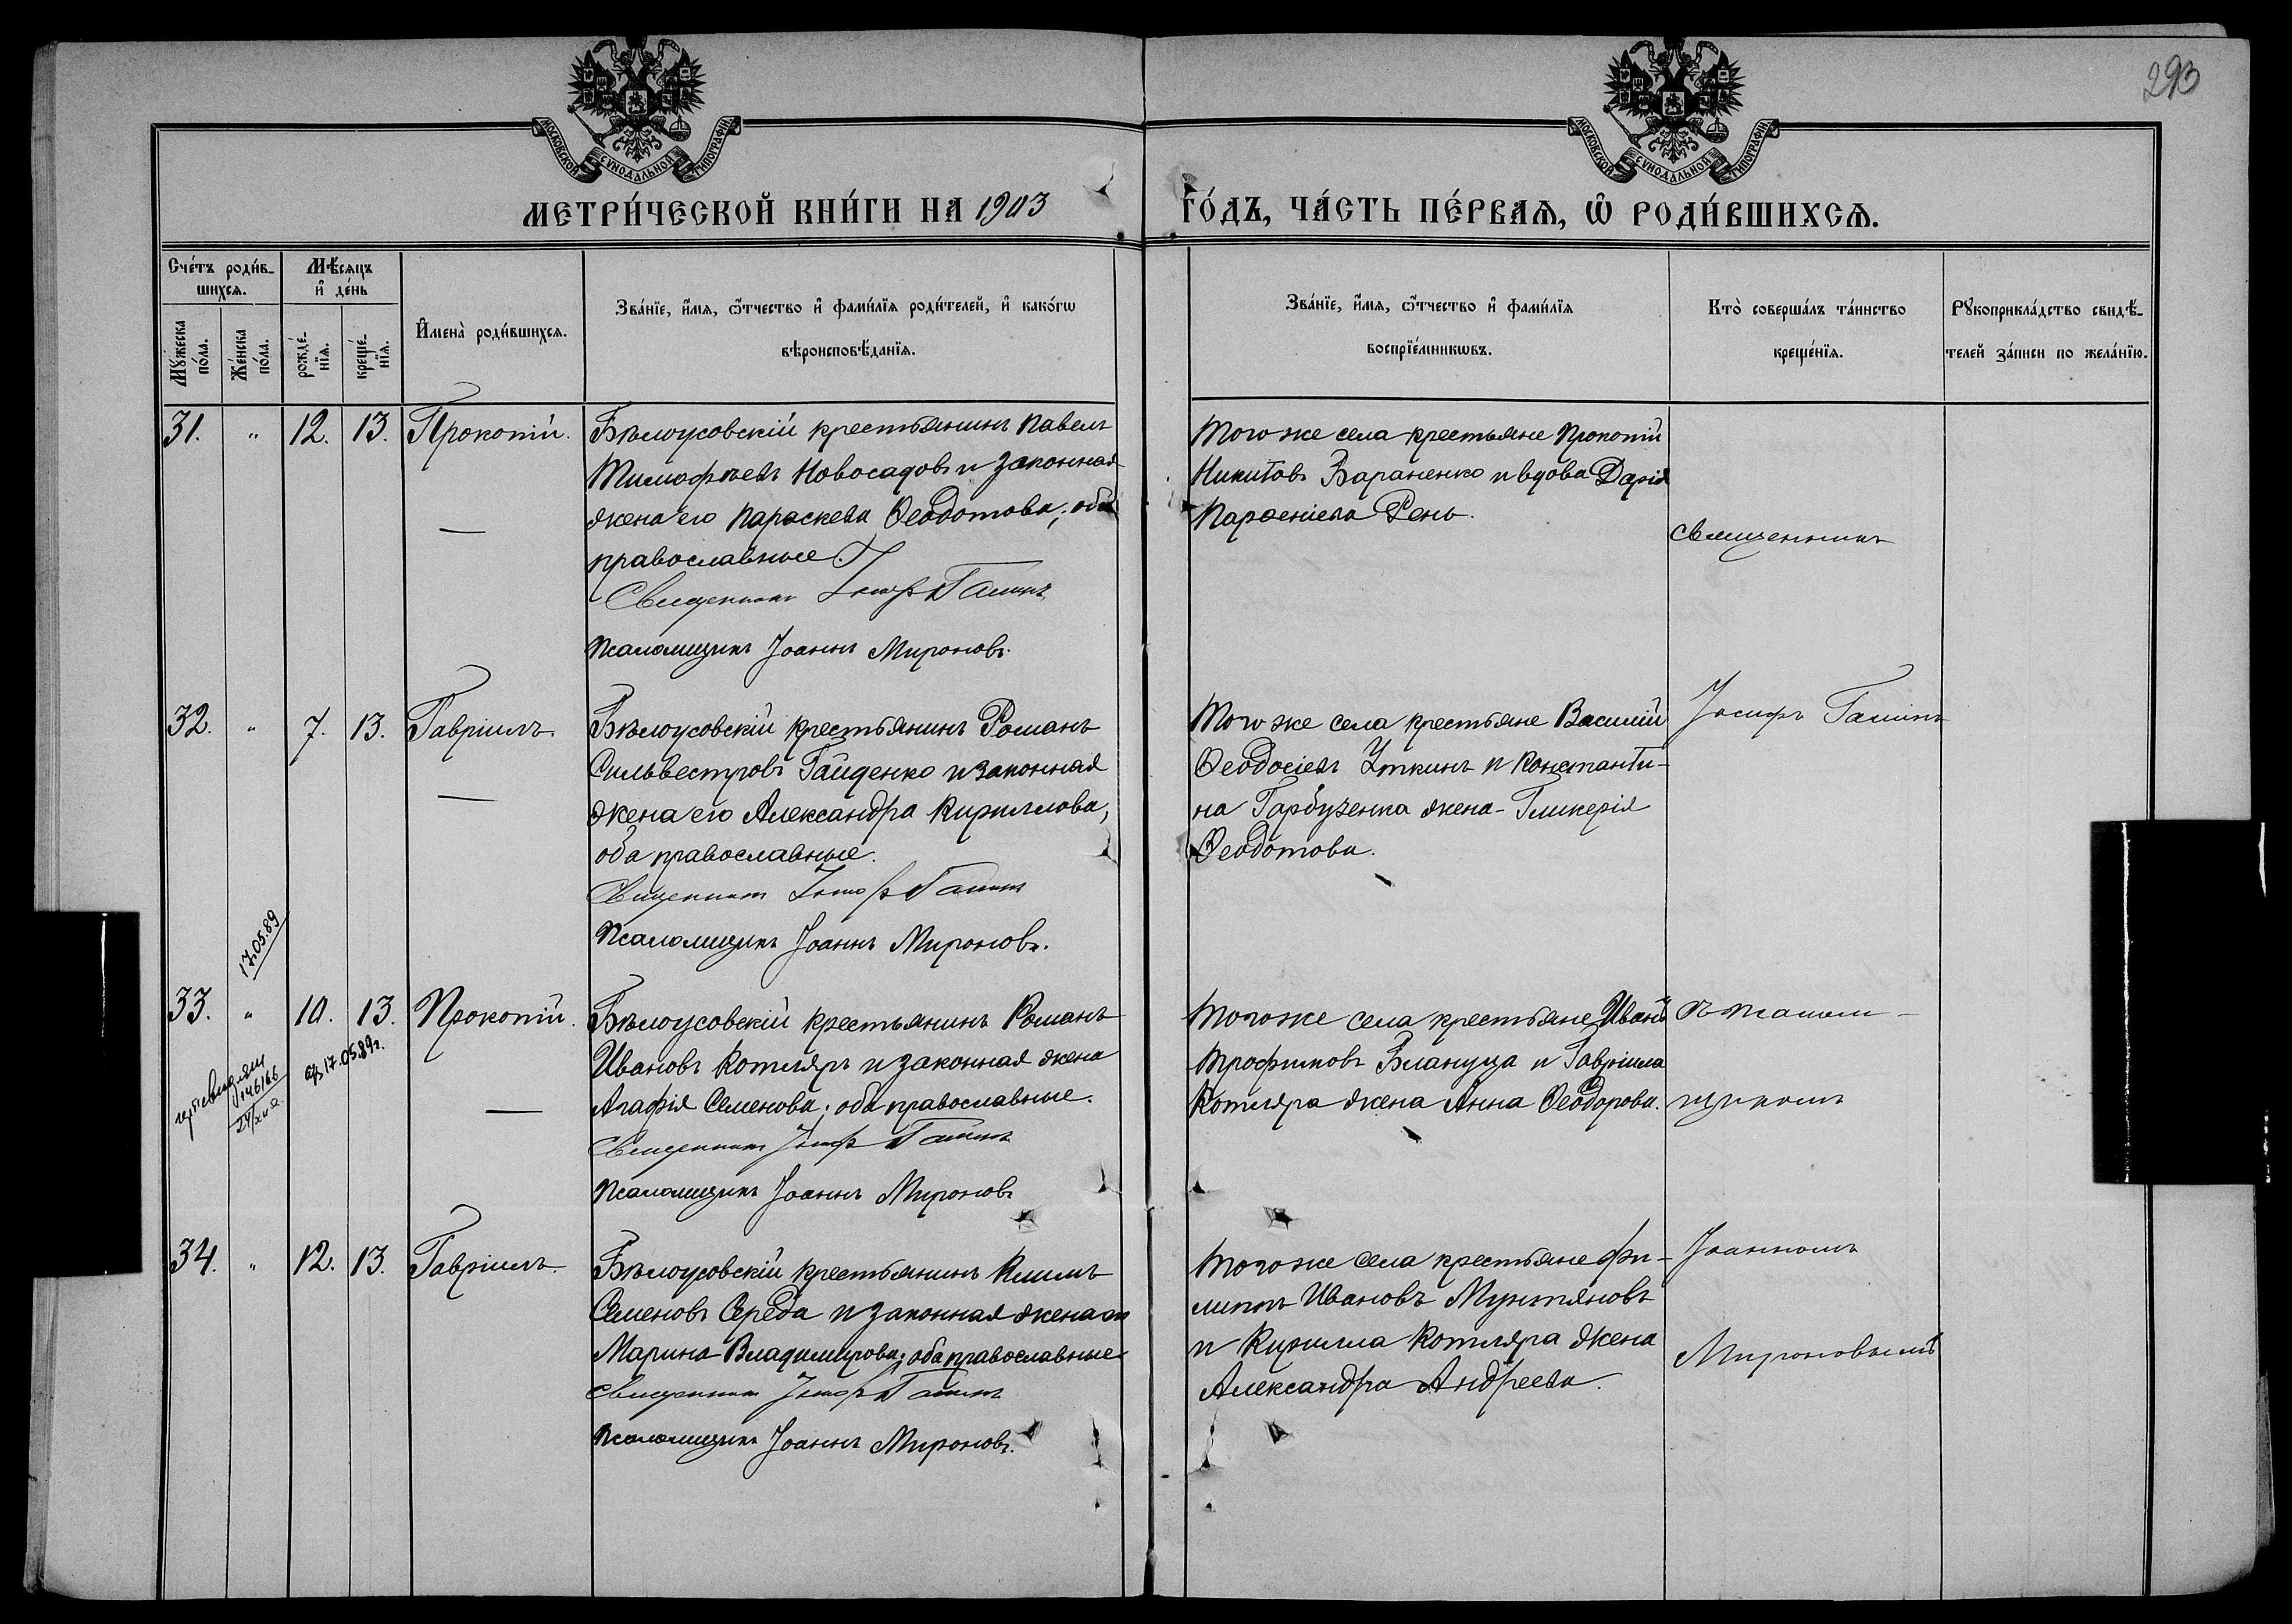 293
МОСКОВСКОЙ СѴНОДАЛЬНОЙ ТИПОГРАФІИ
МОСКОВСКОЙ СѴНОДАЛЬНОЙ ТИПОГРАФІИ
МЕТРИ́ЧЕСКОЙ КНИ́ГИ НА 1903 ГО́ДЪ, ЧА́СТЬ ПЕ́РВАѦ, Ѡ РОДИ́ВШИХСѦ.
Сче́тъ роди́в-
шихсѧ.
Мꙋ́жеска по́ла.
Же́нска по́ла.
Мѣ́сяцъ
и҆ де́нь
рожде́-
нїѧ.
креще́-
нїѧ.
И҆мена̀ роди́вшихсѧ.
Зва́нїе, и҆́мѧ, ѻ҆́тчество и҆ фами́лїѧ роди́телей, и҆ како́гѡ
вѣроисповѣ́данїѧ.
Зва́нїе, и҆́мѧ, ѻ҆́тчество и҆ фами́лїѧ
воспрїе́мникѡвъ.
Кто̀ соверша́лъ та́инство
креще́нїѧ.
Рꙋкоприкла́дство свидѣ́-
телей за́писи по жела́нїю.
31. " 12. 13. Прокопій.
Бѣлоусовскій крестьянинъ Павелъ
Тимофѣевъ Новосадовъ и законная
жена его Параскева Ѳеодотова; оба
православные
Священникъ Іосифъ Гашинъ
Псаломщикъ Іоаннъ Мироновъ.
Того же села крестьяне Прокопій
Никитовъ Бараненко и вдова Дарія
Парѳеніева Рень.
Священникъ
32. " 7. 13. Гавріилъ.
Бѣлоусовскій крестьянинъ Романъ
Сильвестровъ Гайденко и законная
жена его Александра Кириллова,
оба православные.
Священникъ Іосифъ Гашинъ
Псаломщикъ Іоаннъ Мироновъ.
Того же села крестьяне Василій
Ѳеодосіевъ Уткинъ и Константи-
на Гарбузенка жена - Гликерія
Ѳеодотова.
Іосифъ Гашинъ
17.05.89
33. " 10. 13. Прокопій.
17.05.89г.
146166
Бѣлоусовскій крестьянинъ Романъ
Ивановъ Котляръ и законная жена
Агафія Семенова; оба православные.
Священникъ Іосифъ Гашинъ
Псаломщикъ Іоаннъ Мироновъ
Того же села крестьяне Иванъ
Трофимовъ Блануца и Гавріила
Котляра жена Анна Ѳеодорова.
съ псалом-
щикомъ
34. " 12. 13. Гавріилъ.
Бѣлоусовскій крестьянинъ Климъ
Семеновъ Середа и законная жена его
Марина Владимирова; оба православные
Священникъ Іосифъ Гашинъ
Псаломщикъ Іоаннъ Мироновъ.
Того же села крестьяне Фи-
липпъ Ивановъ Мунтяновъ
и Кирилла Котляра жена
Александра Андреева.
Іоанномъ
Мироновымъ